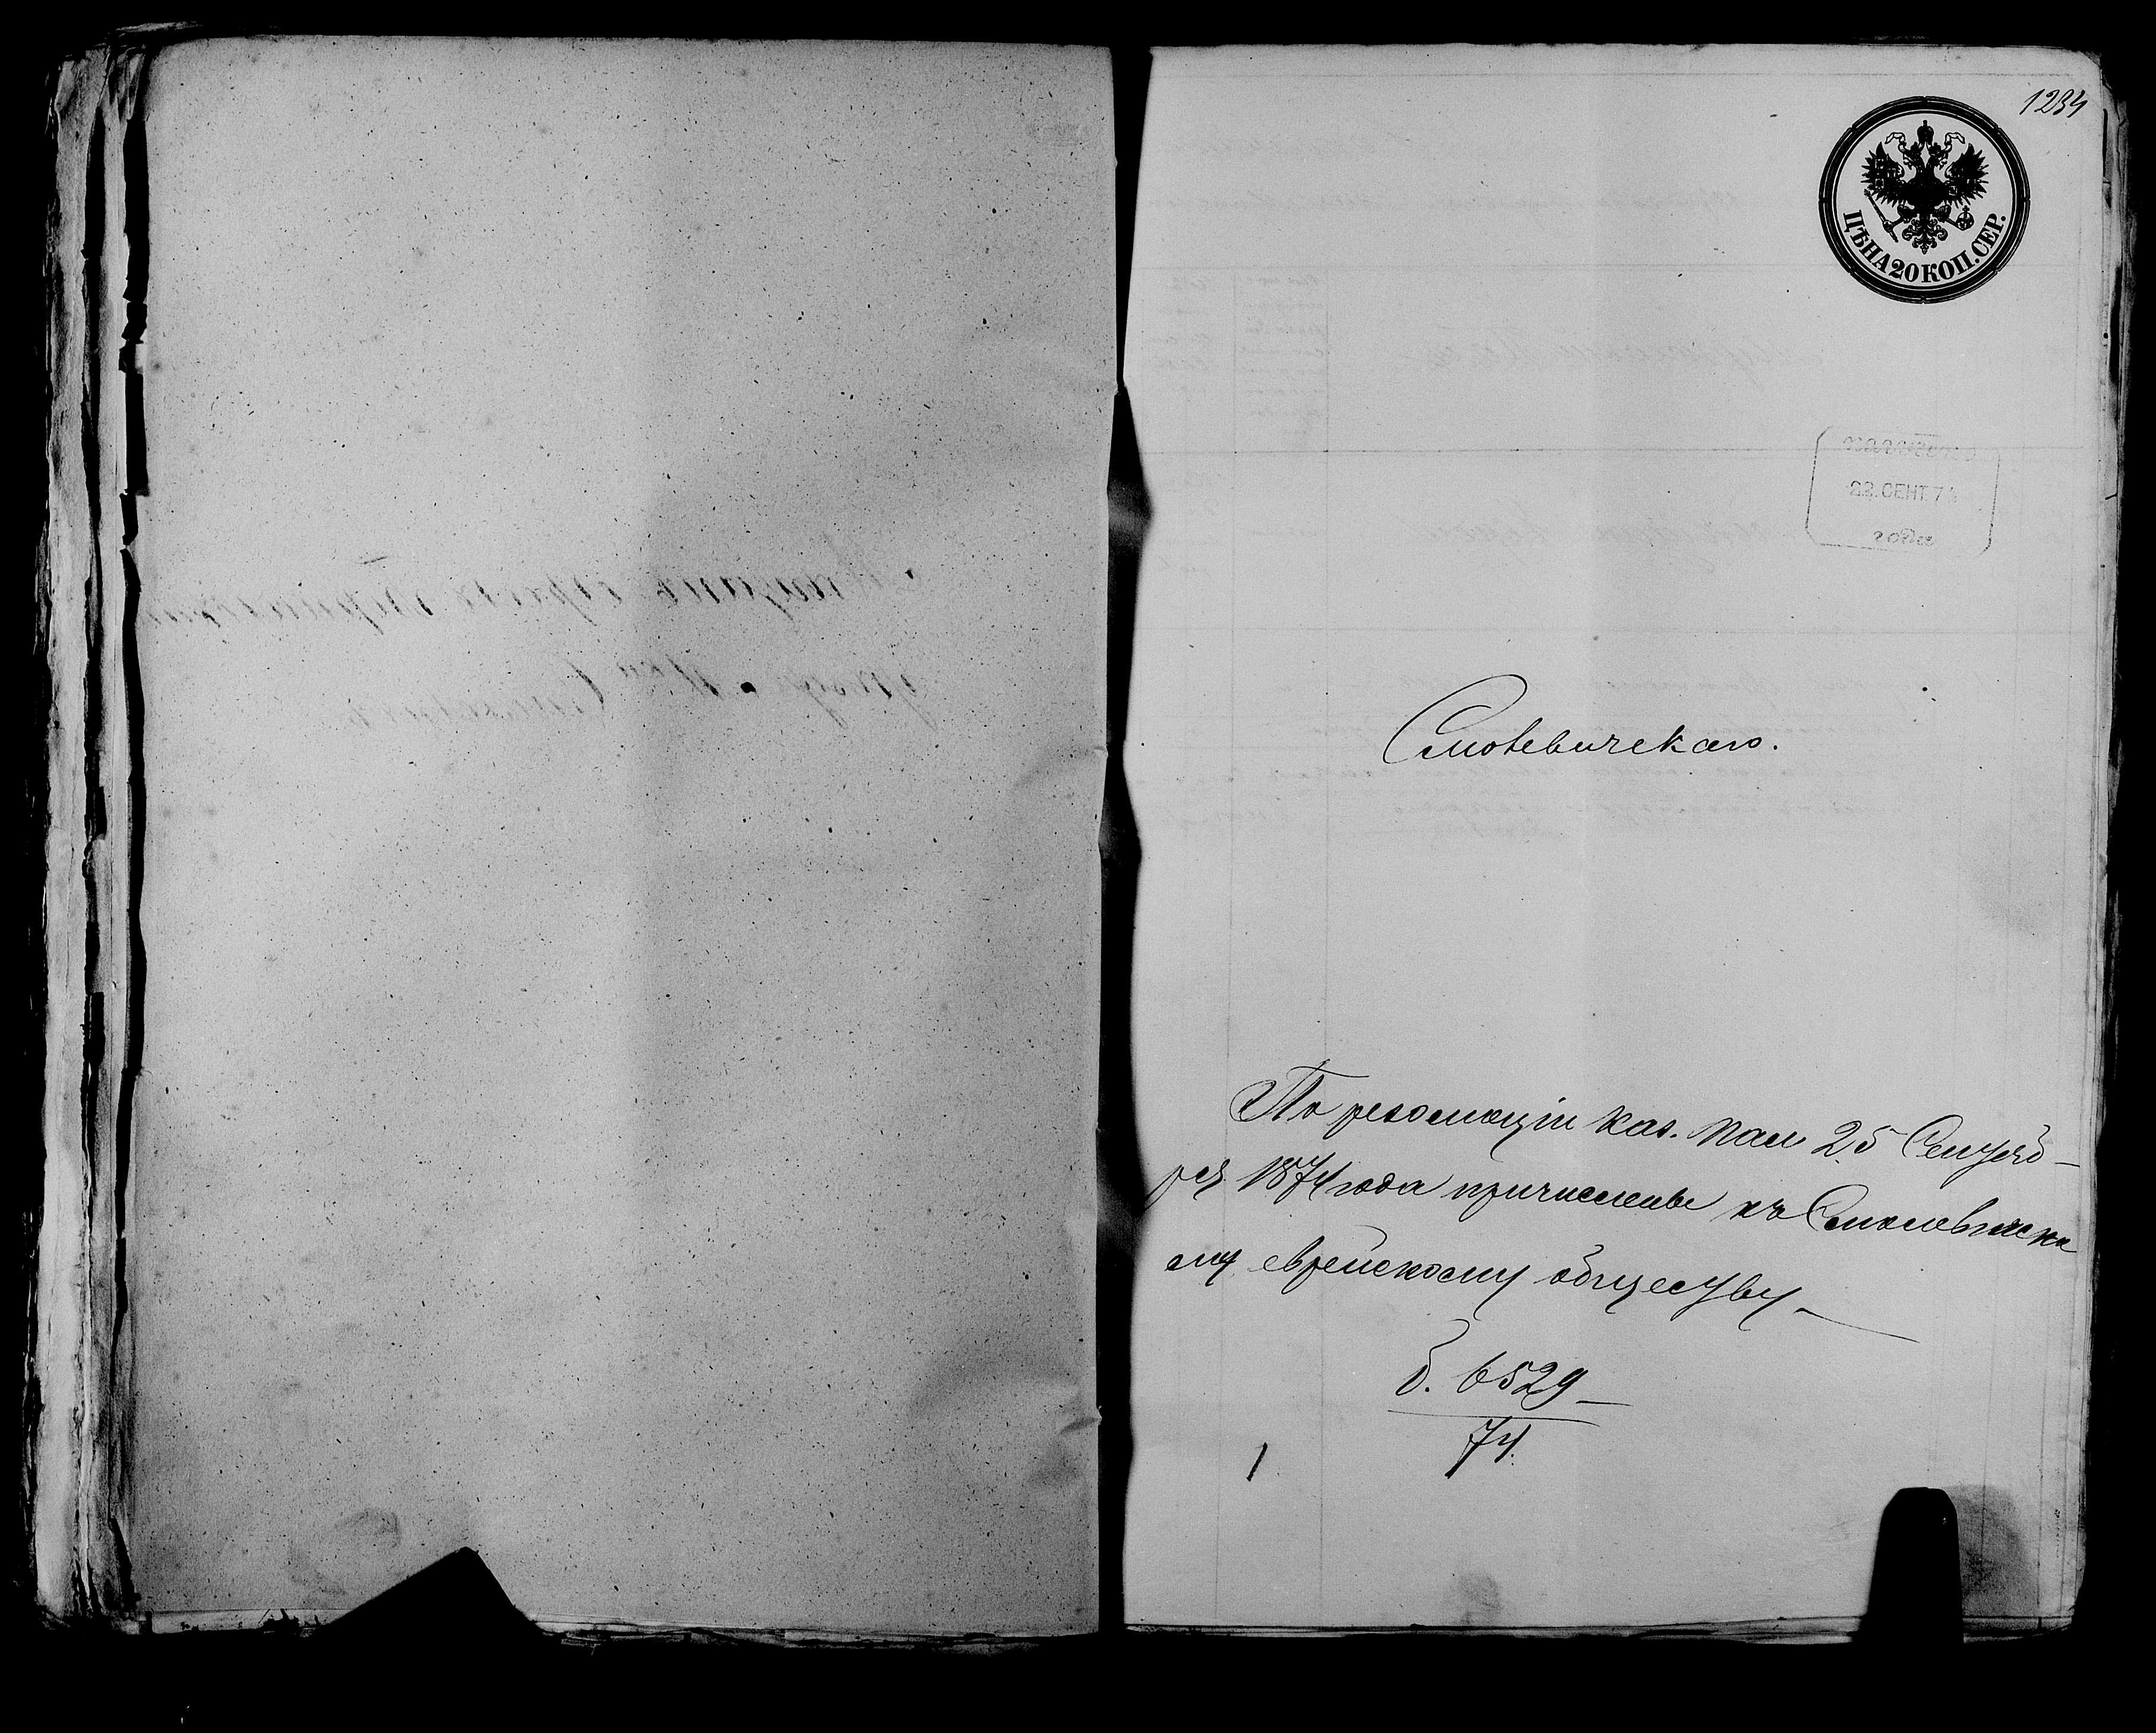 1234
ЦѢНА 20 КОП. СЕР.
22 СЕНТ. 74
года
Смолевичскаго.
По резолюціи Каз. Пал 25 Сентяб-
ря 1874 года причислены къ Смолевичско
му еврейскому обществу
б. 6529
74.
1